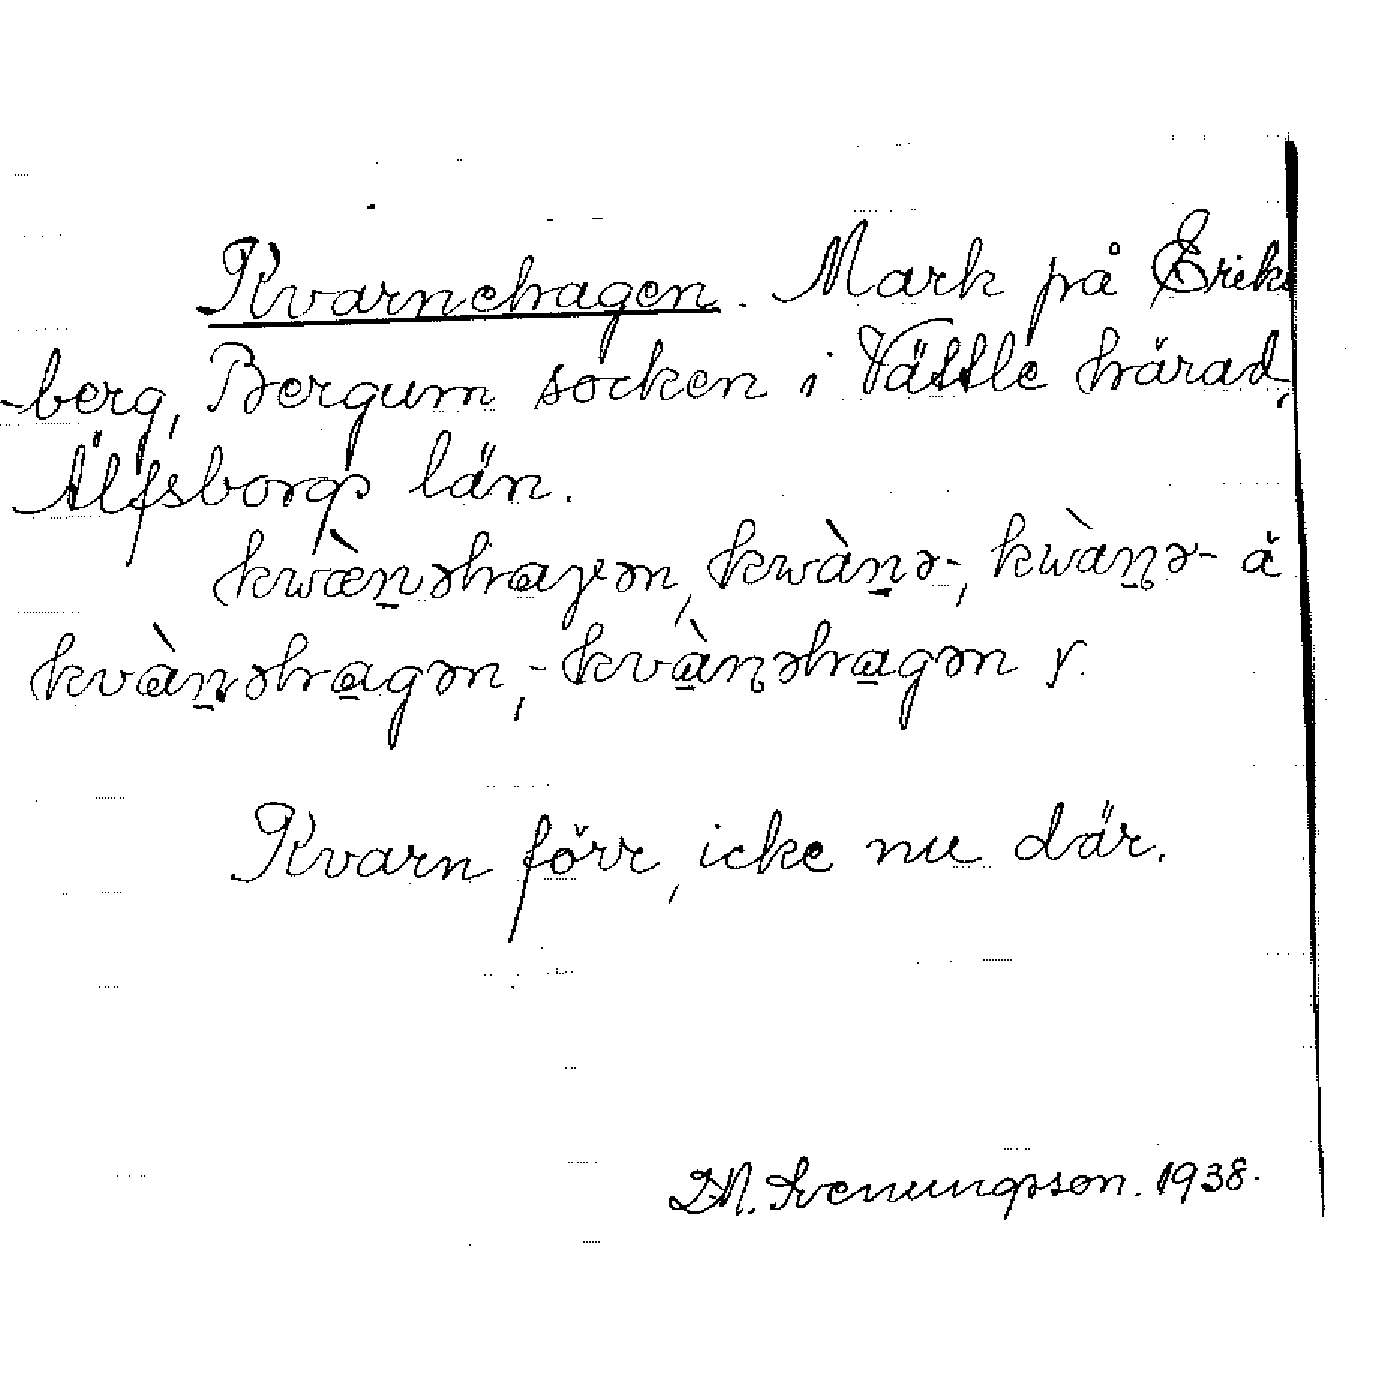 Kvarnehagen. Mark på Eriks
-berg, Bergum socken i Vättle härad,
Älfsborgs län.
kwæ̀n̠əhaɣən, kwàn̠ə-, kwàɳə- ä
kvàn̠əhagən, - kvàɳəhagən y.
Kvarn förr, icke nu där.
D.N. Svenungsson. 1938.